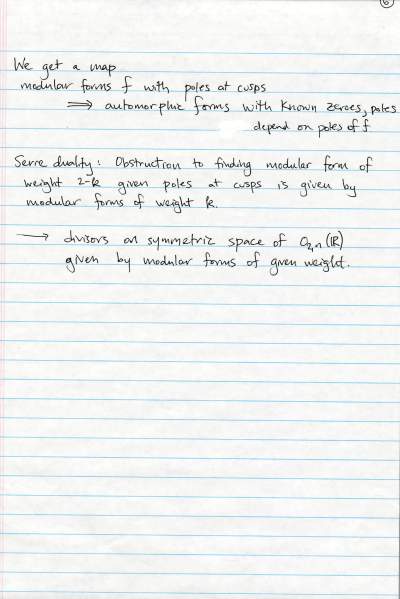 6
We get a map
modular forms f with poles at cusps
⟹ automorphic forms with known zeroes, poles
depend on poles of f
Serre duality: Obstruction to finding modular form of
weight 2-k given poles at cusps is given by
modular forms of weight k.
⟶ divisors on symmetric space of O₂,ₙ(ℝ)
given by modular forms of given weight.